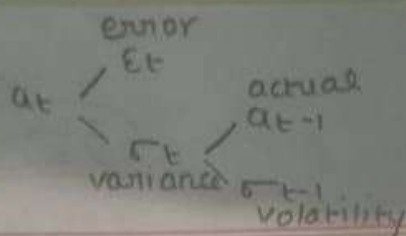 error
εt
actual
at
at-1
σt
variance
σt-1
volatility